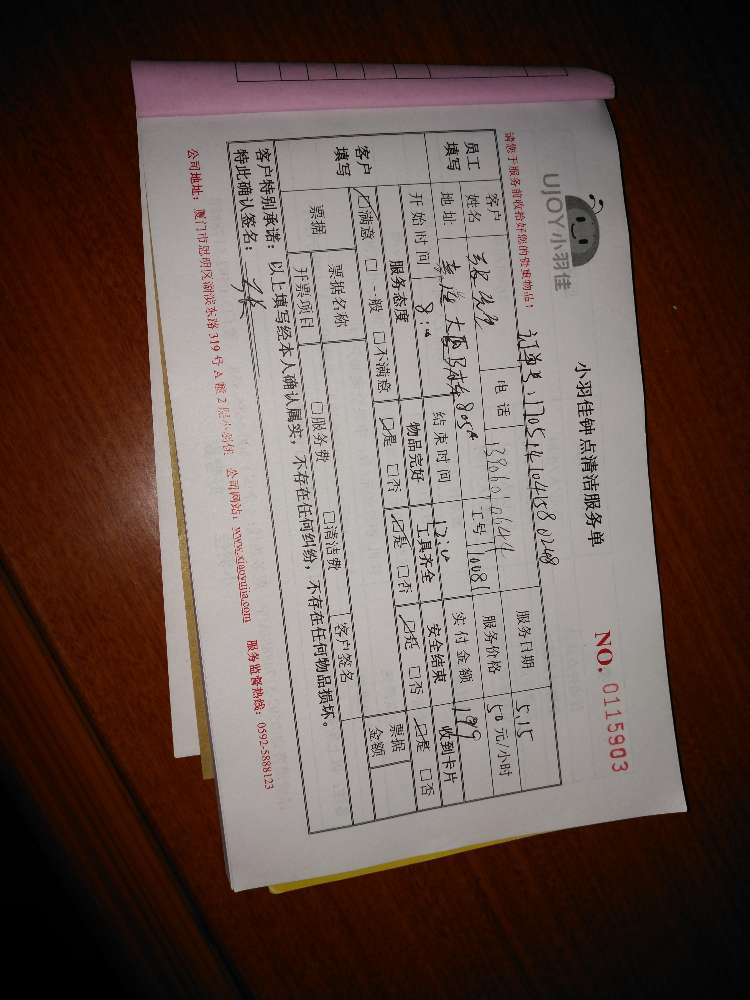 UJOY小羽佳
小羽佳钟点清洁服务单
NO. 0115903
请您于服务前收拾好您的贵重物品！
订单号：
员工填写
客户姓名
电话
服务日期 5.15
地址 大厦B
工号 1008
服务价格 50元/小时
开始时间 8:
结束时间 12:
实付金额 199
客户填写
服务态度 物品完好 工具齐全 安全结束 收到卡片
☑满意 □一般 □不满意 ☑是 □否 ☑是 □否 ☑是 □否 ☑是 □否
票据
票据名称
客户签名
票据金额
开票项目 □服务费 □清洁费
客户特别承诺：以上填写经本人确认属实，不存在任何纠纷，不存在任何物品损坏。
特此确认签名：
公司地址：厦门市思明区湖滨东路319号A座2层小羽佳 公司网站：www.xiaoyujia.com 服务监督热线：0592-5888123